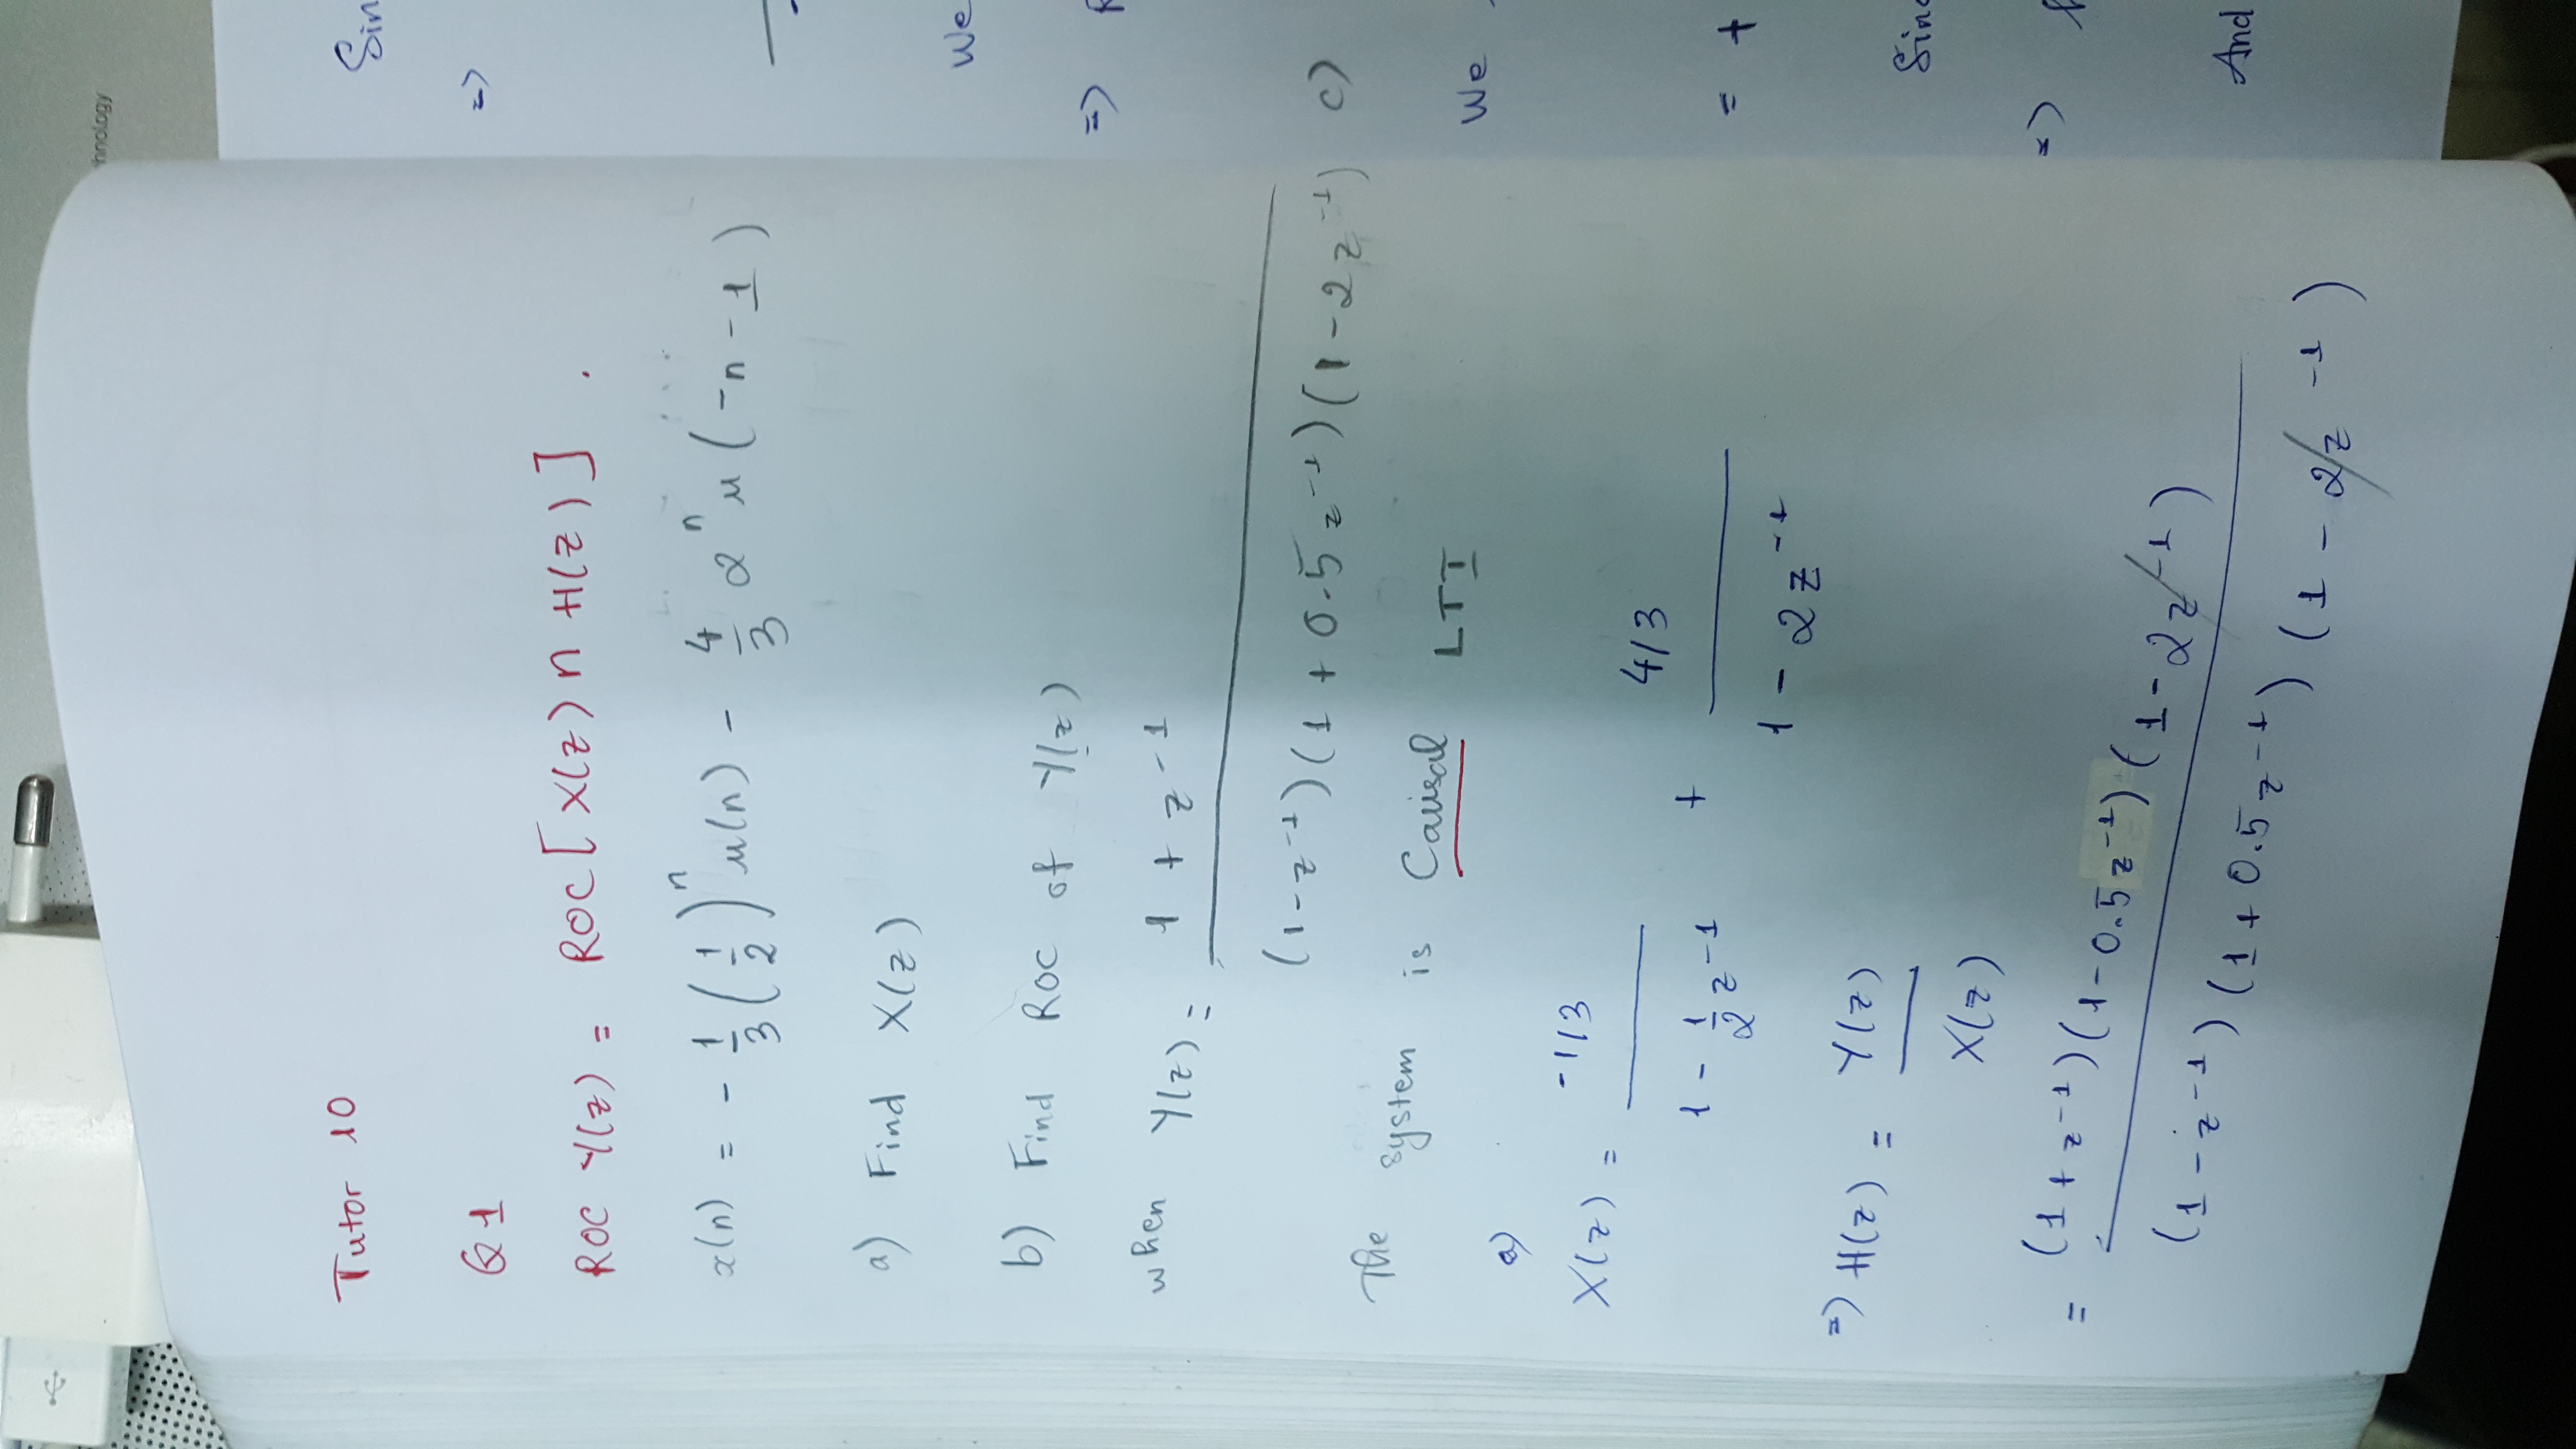 hnology
Tutor 10
Q1
ROC Y(z) = ROC [ X(z) ∩ H(z) ] .
x(n) = - 1/3 (1/2)^n u(n) - 4/3 2^n u(-n-1)
a) Find X(z)
b) Find ROC of Y(z)
when Y(z) = (1 + z^-1) / ((1-z^-1)(1+0.5z^-1)(1-2z^-1))
The system is Causal LTI
a)
X(z) = (-1/3) / (1 - 1/2 z^-1) + (4/3) / (1 - 2z^-1)
=> H(z) = Y(z) / X(z)
= (1+z^-1)(1-0.5z^-1)(1-2z^-1) / ((1-z^-1)(1+0.5z^-1)(1-2z^-1))
Sin
=>
We
=>
c)
We
= +
Sinc
=>
And